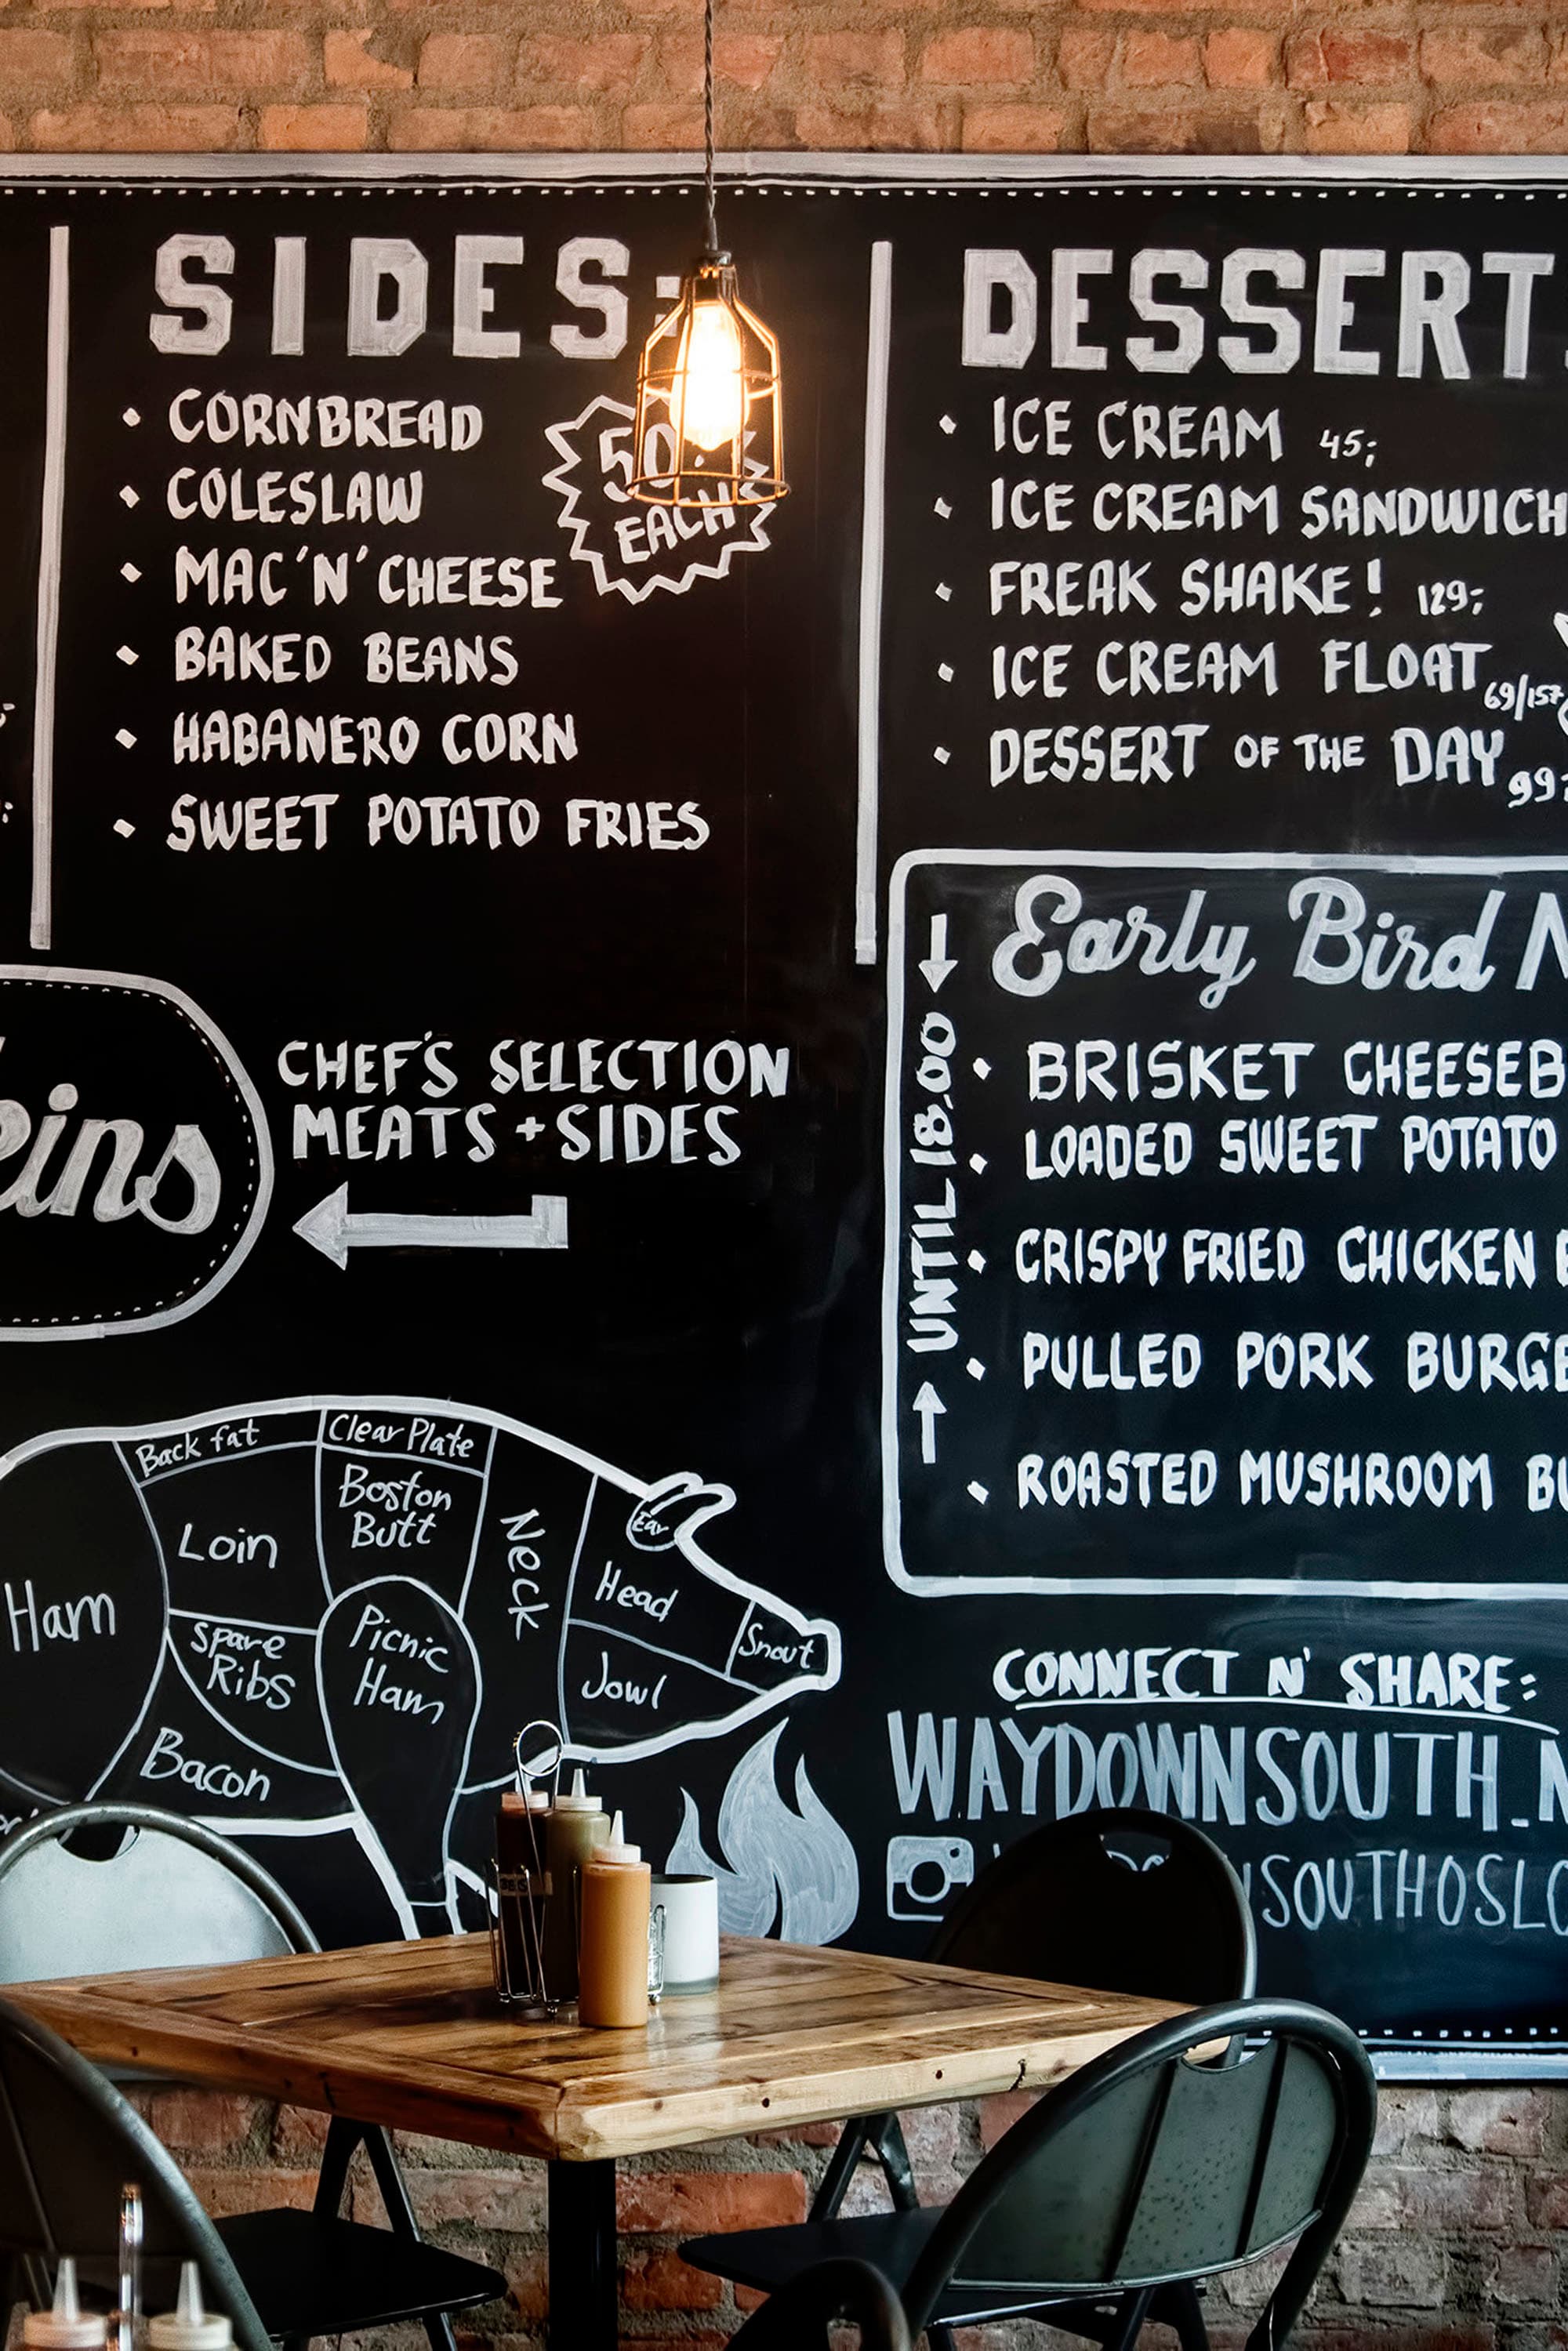 SIDES:
CORNBREAD
COLESLAW
MAC'N'CHEESE
BAKED BEANS
HABANERO CORN
SWEET POTATO FRIES
50
EACH
DESSERT
ICE CREAM 45;
ICE CREAM SANDWICH
FREAK SHAKE! 129;
ICE CREAM FLOAT 69/157
DESSERT OF THE DAY 99
CHEF'S SELECTION
MEATS + SIDES
Early Bird
UNTIL 18.00
BRISKET
LOADED SWEET POTATO
CRISPY FRIED CHICKEN
PULLED PORK
ROASTED MUSHROOM
Back fat
Clear Plate
Boston
Butt
Loin
Neck
Ear
Head
Snout
Jowl
Ham
Spare
Ribs
Picnic
Ham
Bacon
CONNECT N' SHARE:
WAYDOWNSOUTH